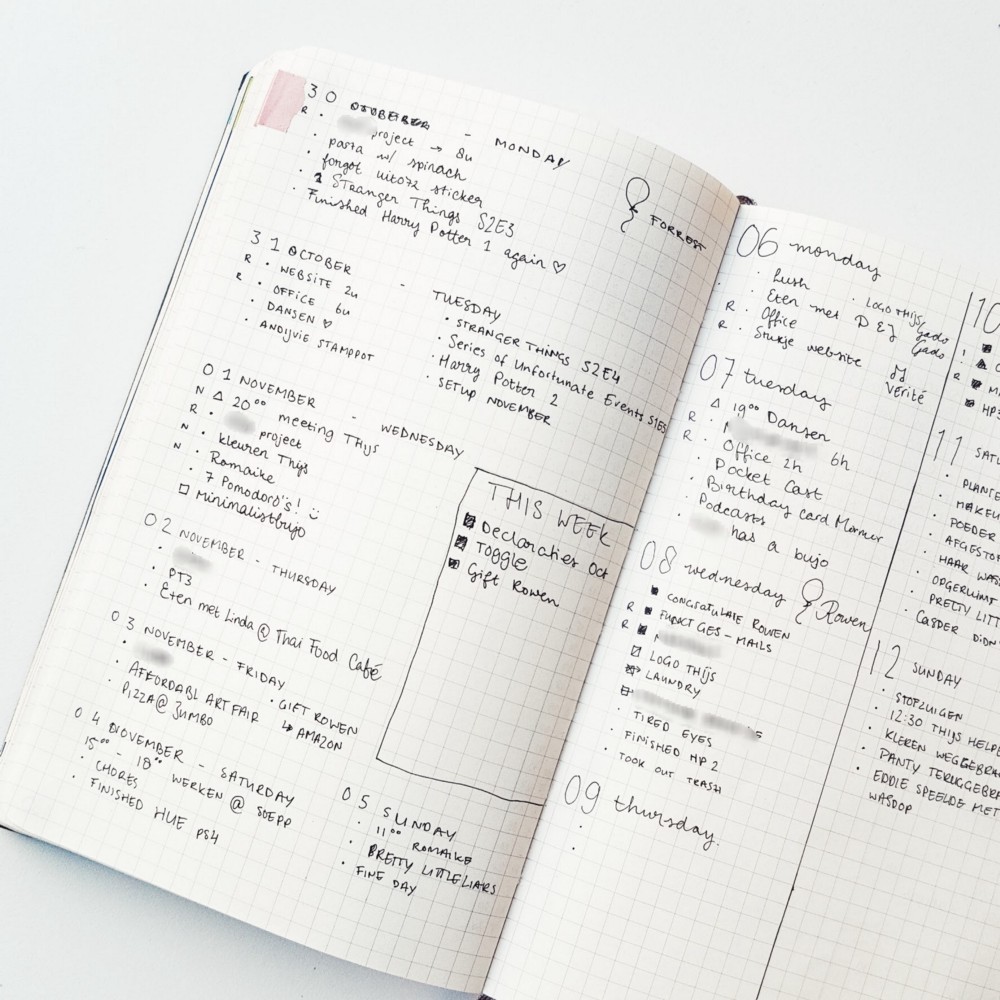 30 OCTOBER - MONDAY
R • project → 8u
• pasta w/ spinach
• forgot uitozz sticker
• 2 Stranger Things S2E3
• Finished Harry Potter 1 again ♡
FORREST
31 OCTOBER - TUESDAY
R • WEBSITE 2u
R • OFFICE 6u
• DANSEN ♡
• ANDIJVIE STAMPPOT
• STRANGER THINGS S2E4
• Series of Unfortunate Events S1E5
• Harry Potter 2
• SETUP NOVEMBER
01 NOVEMBER - WEDNESDAY
N △ 20⁰⁰ meeting THIJS
R • project
N • kleuren Thijs
• Romaike
• 7 Pomodoro's! :)
□ Minimalistbujo
THIS WEEK
Declaraties Oct
Toggle
Gift Rowen
02 NOVEMBER - THURSDAY
• PT3
• Eten met Linda @ Thai Food Café
03 NOVEMBER - FRIDAY
• AFFORDABL ART FAIR
• PIZZA @ JUMBO
• GIFT ROWEN
↳ AMAZON
04 NOVEMBER - SATURDAY
15⁰⁰ - 18⁰⁰ WERKEN @ SOEPP
• CHORES
• FINISHED HUE PS4
05 SUNDAY
• 11⁰⁰ ROMAIKE
• PRETTY LITTLE LIARS
• FINE DAY
06 monday
• Lush
• Eten met D & J
R • Office
R • Stukje website
• LOGO THIJS
Gado Gado
Vérité
07 tuesday
△ 19⁰⁰ Dansen
R • 6h
R • Office 2h
• Pocket Cast
• Birthday card Mamer
• Podcasts
• has a bujo
08 wednesday
Rowen
CONGRATULATE ROWEN
R FUNCTGES-MAILS
R
LOGO THIJS
LAUNDRY
• TIRED EYES
• FINISHED HP 2
• TOOK OUT TRASH
09 thursday.
10
HP3
11 SATU
• PLANTE
• MAKEU
• POEDER
• AFGESTOF
• HAAR WAS
• OPGERUIMT
• PRETTY LITT
• CASPER DION
12 SUNDAY
• STOFZUIGEN
• 12:30 THIJS HELPE
• KLEREN WEGGEBRA
• PANTY TERUGGEBRA
• EDDIE SPEELDE MET
WASDOP